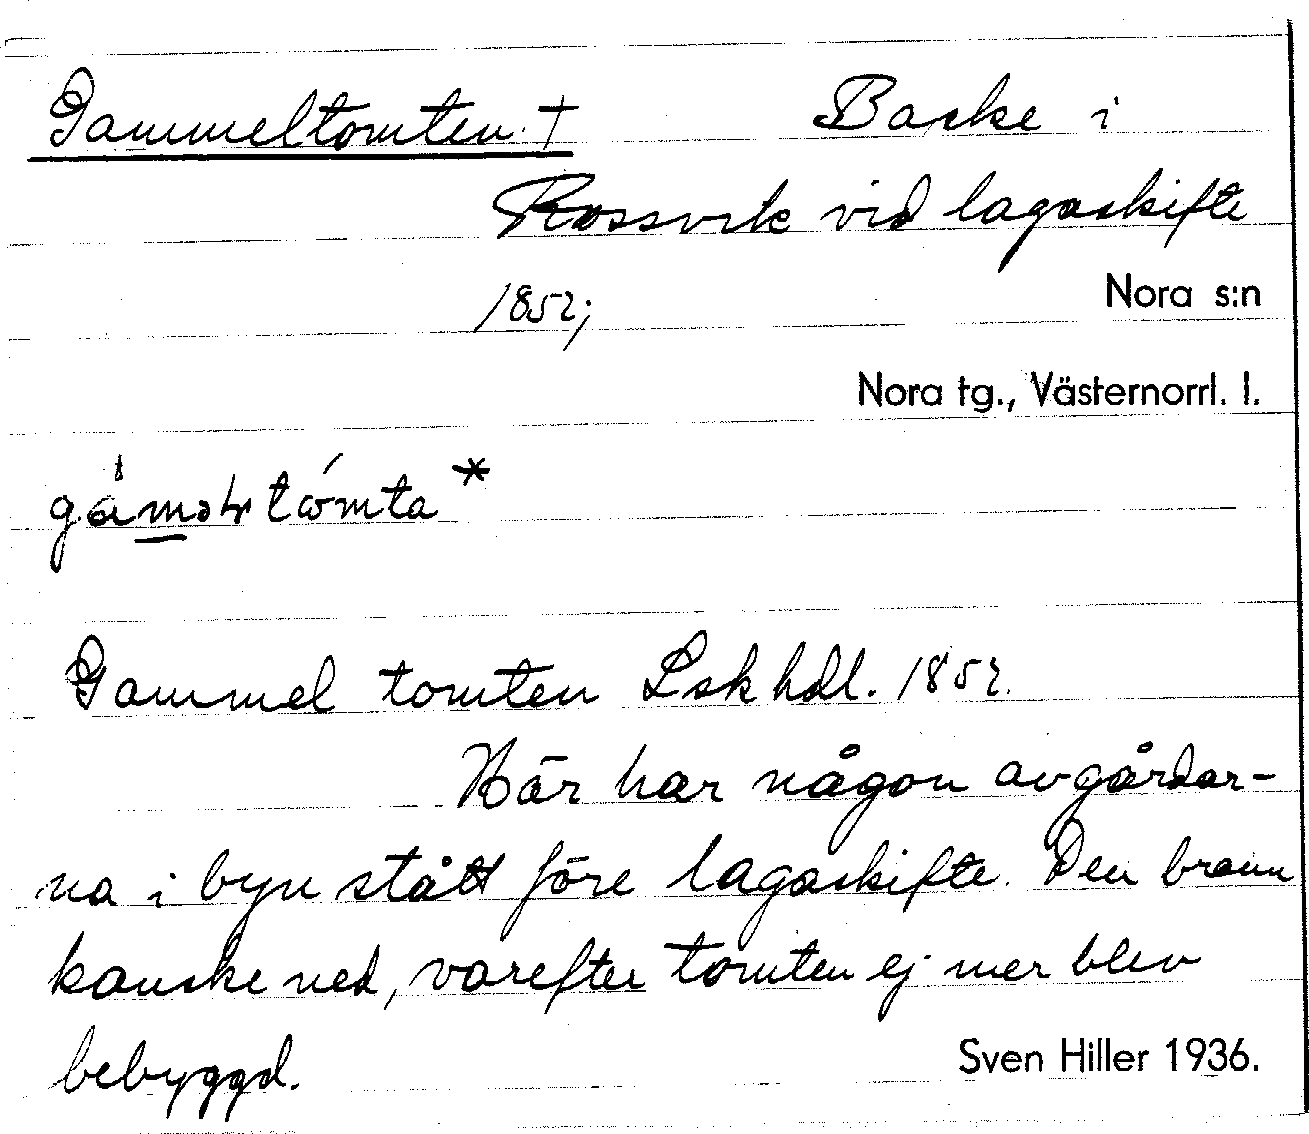 Gammeltomten. † Backe i
Rossvik vid lagaskifte
1852; Nora s:n
Nora tg., Västernorrl. l.
tómta *
Gammel tomten Lskhdl. 1852.
Här har någon av gårdar-
na i byn stått före lagaskifte. Den brann
kanske ned, varefter tomten ej mer blev
bebyggd. Sven Hiller 1936.